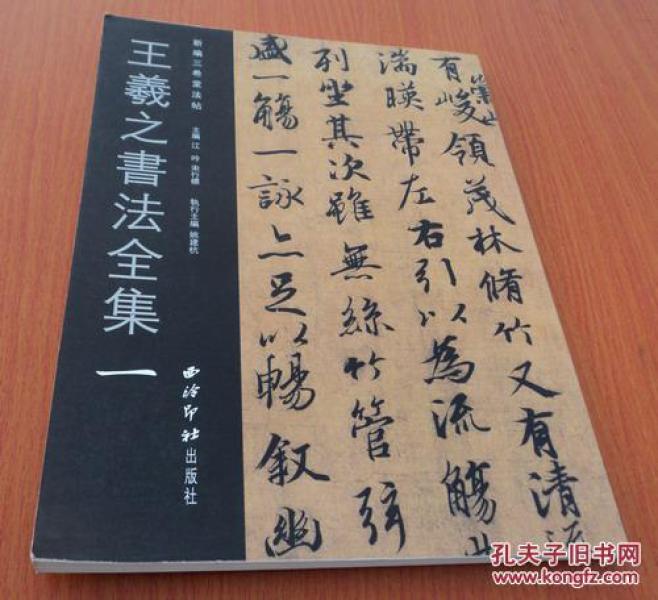 新編三希堂法帖
王羲之書法全集 一
主編 江 吟
執行主編 姚建杭
西泠印社出版社
崇山
有峻領茂林脩竹又有清流
湍暎帶左右引以為流觴
列坐其次雖無絲竹管弦
盛一觴一詠亦足以暢叙幽
孔夫子旧书网
www.kongfz.com